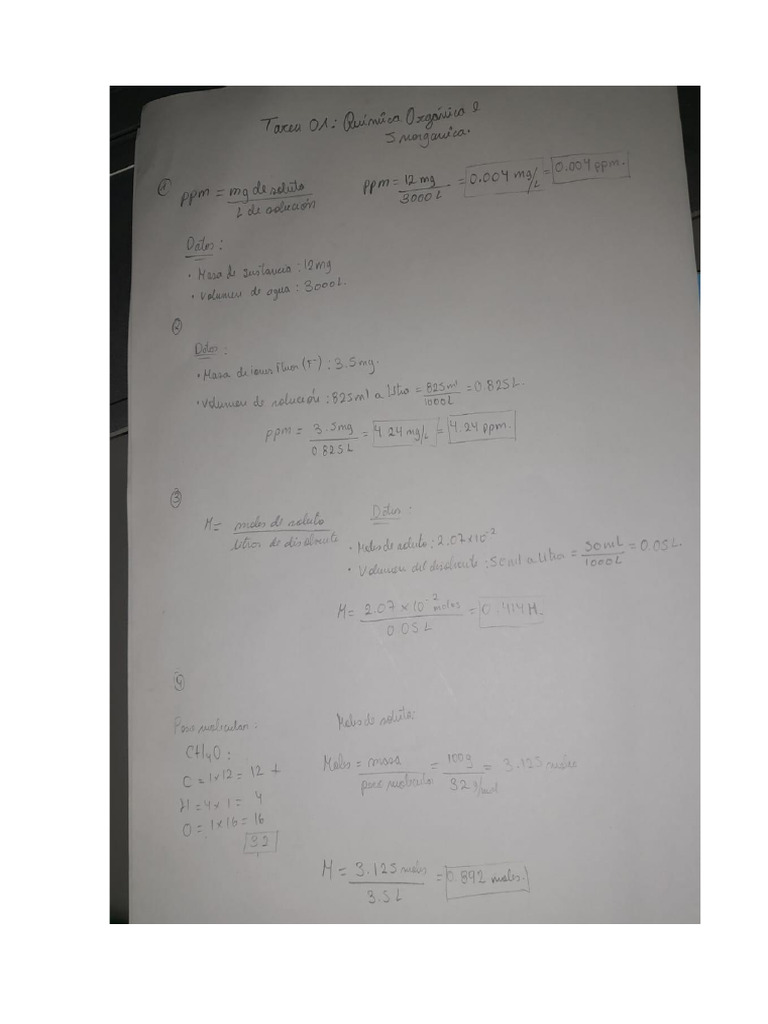 Tarea 01: Química Orgánica e
Inorganica.
① ppm = mg de soluto / L de solución
ppm = 12 mg / 3000 L = 0.004 mg/L = 0.004 ppm.
Datos:
• Masa de sustancia : 12mg
• Volumen de agua : 3000L.
②
Datos:
• Masa de iones Fluor (F⁻) : 3.5mg.
• Volumen de solución : 825ml a Litro = 825ml / 1000L = 0.825L.
ppm = 3.5mg / 0.825L = 4.24 mg/L = 4.24 ppm.
③
M = moles de soluto / litros de disolvente
Datos:
• Moles de soluto : 2.07x10⁻²
• Volumen del disolvente : 50ml a Litro = 50mL / 1000L = 0.05L.
M = 2.07 x 10⁻² moles / 0.05L = 0.414M.
④
Peso molecular:
CH4O:
C = 1x12 = 12 +
H = 4x1 = 4
O = 1x16 = 16
32
Moles de soluto:
Moles = masa / peso molecular = 100g / 32 g/mol = 3.125 moles
M = 3.125 moles / 3.5L = 0.892 moles.